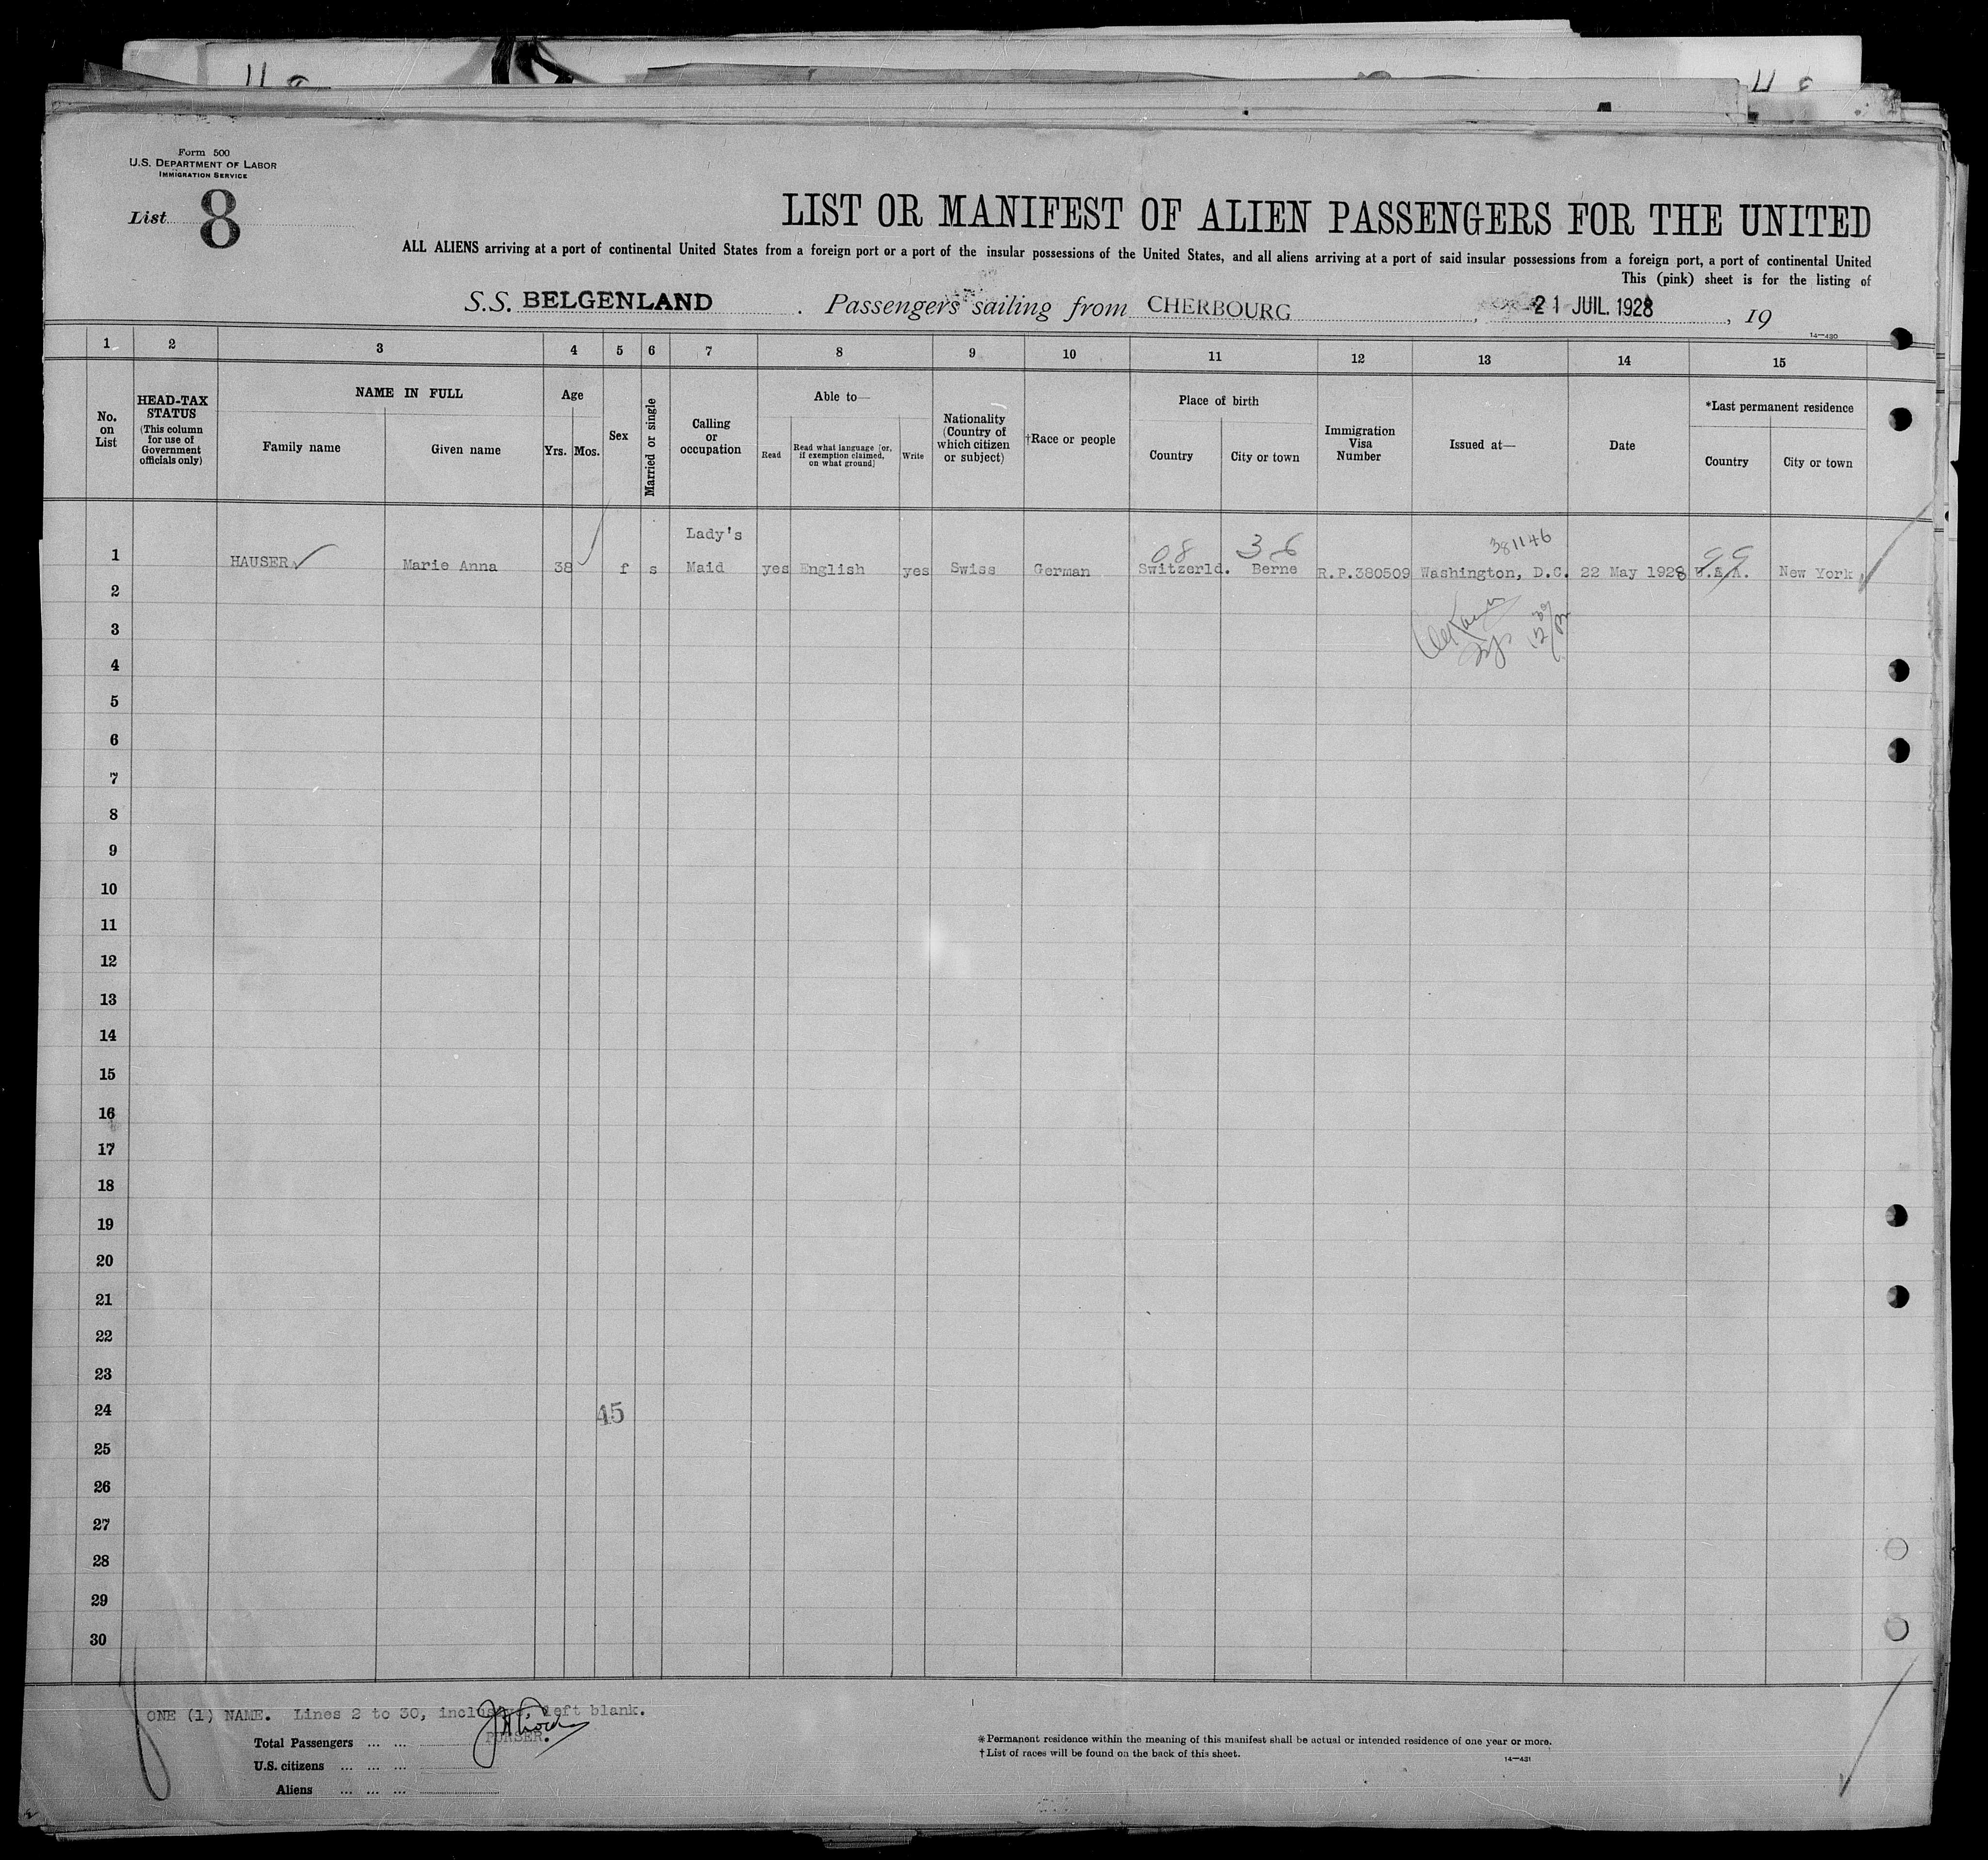 Form 500
U.S. DEPARTMENT OF LABOR
IMMIGRATION SERVICE
List 8
LIST OR MANIFEST OF ALIEN PASSENGERS FOR THE UNITED
ALL ALIENS arriving at a port of continental United States from a foreign port or a port of the insular possessions of the United States, and all aliens arriving at a port of said insular possessions from a foreign port, a port of continental United
This (pink) sheet is for the listing of
S.S. BELGENLAND . Passengers sailing from CHERBOURG , 21 JUIL. 1928 , 19
14—430
1 2 3 4 5 6 7 8 9 10 11 12 13 14 15
No. on List
HEAD-TAX STATUS
(This column for use of Government officials only)
NAME IN FULL
Family name
Given name
Age
Yrs. Mos.
Sex
Married or single
Calling or occupation
Able to—
Read
Read what language [or, if exemption claimed, on what ground]
Write
Nationality (Country of which citizen or subject)
†Race or people
Place of birth
Country
City or town
Immigration Visa Number
Issued at—
Date
*Last permanent residence
Country
City or town
08 36 381146 99
1 HAUSER Marie Anna 38 f s Lady's Maid yes English yes Swiss German Switzerld. Berne R.P.380509 Washington, D.C. 22 May 1928 U.S.A. New York
2
3
4
5
6
7
8
9
10
11
12
13
14
15
16
17
18
19
20
21
22
23
24
45
25
26
27
28
29
30
ONE (1) NAME. Lines 2 to 30, inclusive, left blank.
PURSER.
Total Passengers ... ...
U.S. citizens ... ... ...
Aliens ... ... ...
*Permanent residence within the meaning of this manifest shall be actual or intended residence of one year or more.
†List of races will be found on the back of this sheet.
14—431